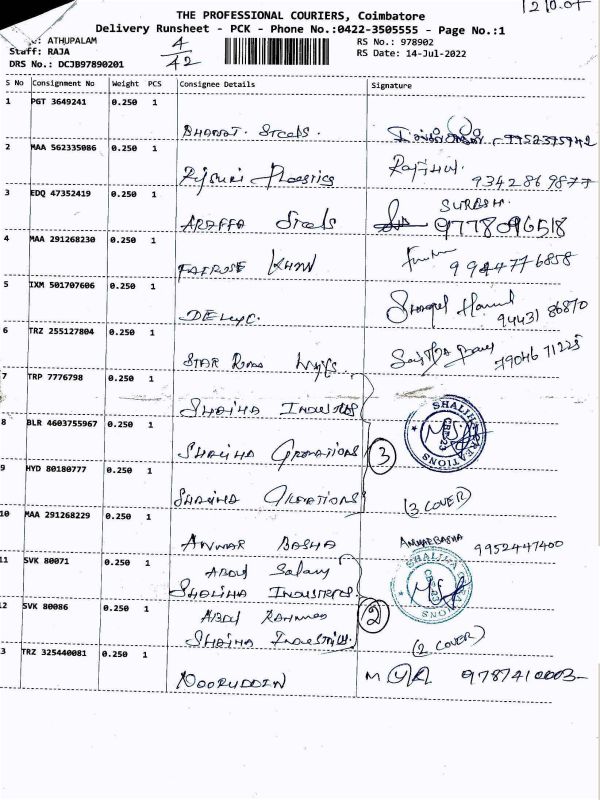 THE PROFESSIONAL COURIERS, Coimbatore
Delivery Runsheet - PCK - Phone No.:0422-3505555 - Page No.:1
: ATHUPALAM
Staff: RAJA
DRS No.: DCJB97890201
4/42
RS No.: 978902
RS Date: 14-Jul-2022
S No Consignment No Weight PCS Consignee Details Signature
1 PGT 3649241 0.250 1
BHARAT. Steels.
2 MAA 562335086 0.250 1
Plastics 9342869877
3 EDQ 47352419 0.250 1
SURESH.
ARAFFA Steels 9778096518
4 MAA 291268230 0.250 1
FAIROSE KHAN 9944776858
5 IXM 501707606 0.250 1
94431 86870
6 TRZ 255127804 0.250 1
STAR 79046 71225
7 TRP 7776798 0.250 1
SHALIHA INDUSTRIES
8 BLR 4603755967 0.250 1
SHALIHA CREATIONS
CBE-23
SHALIHA CREATIONS 3
9 HYD 80180777 0.250 1
SHALIHA CREATIONS (3 COVER)
10 MAA 291268229 0.250 1
ANWAR BASHA ANWARBASHA 9952447400
11 SVK 80071 0.250 1
ABDUL Salam
SHALIHA INDUSTRIES
SHALIHA CREATIONS
CBE-23
12 SVK 80086 0.250 1
ABDUL RAHMAN 2
SHALIHA INDUSTRIES (2 COVER)
3 TRZ 325440081 0.250 1
NOORUDDIN 9787410003